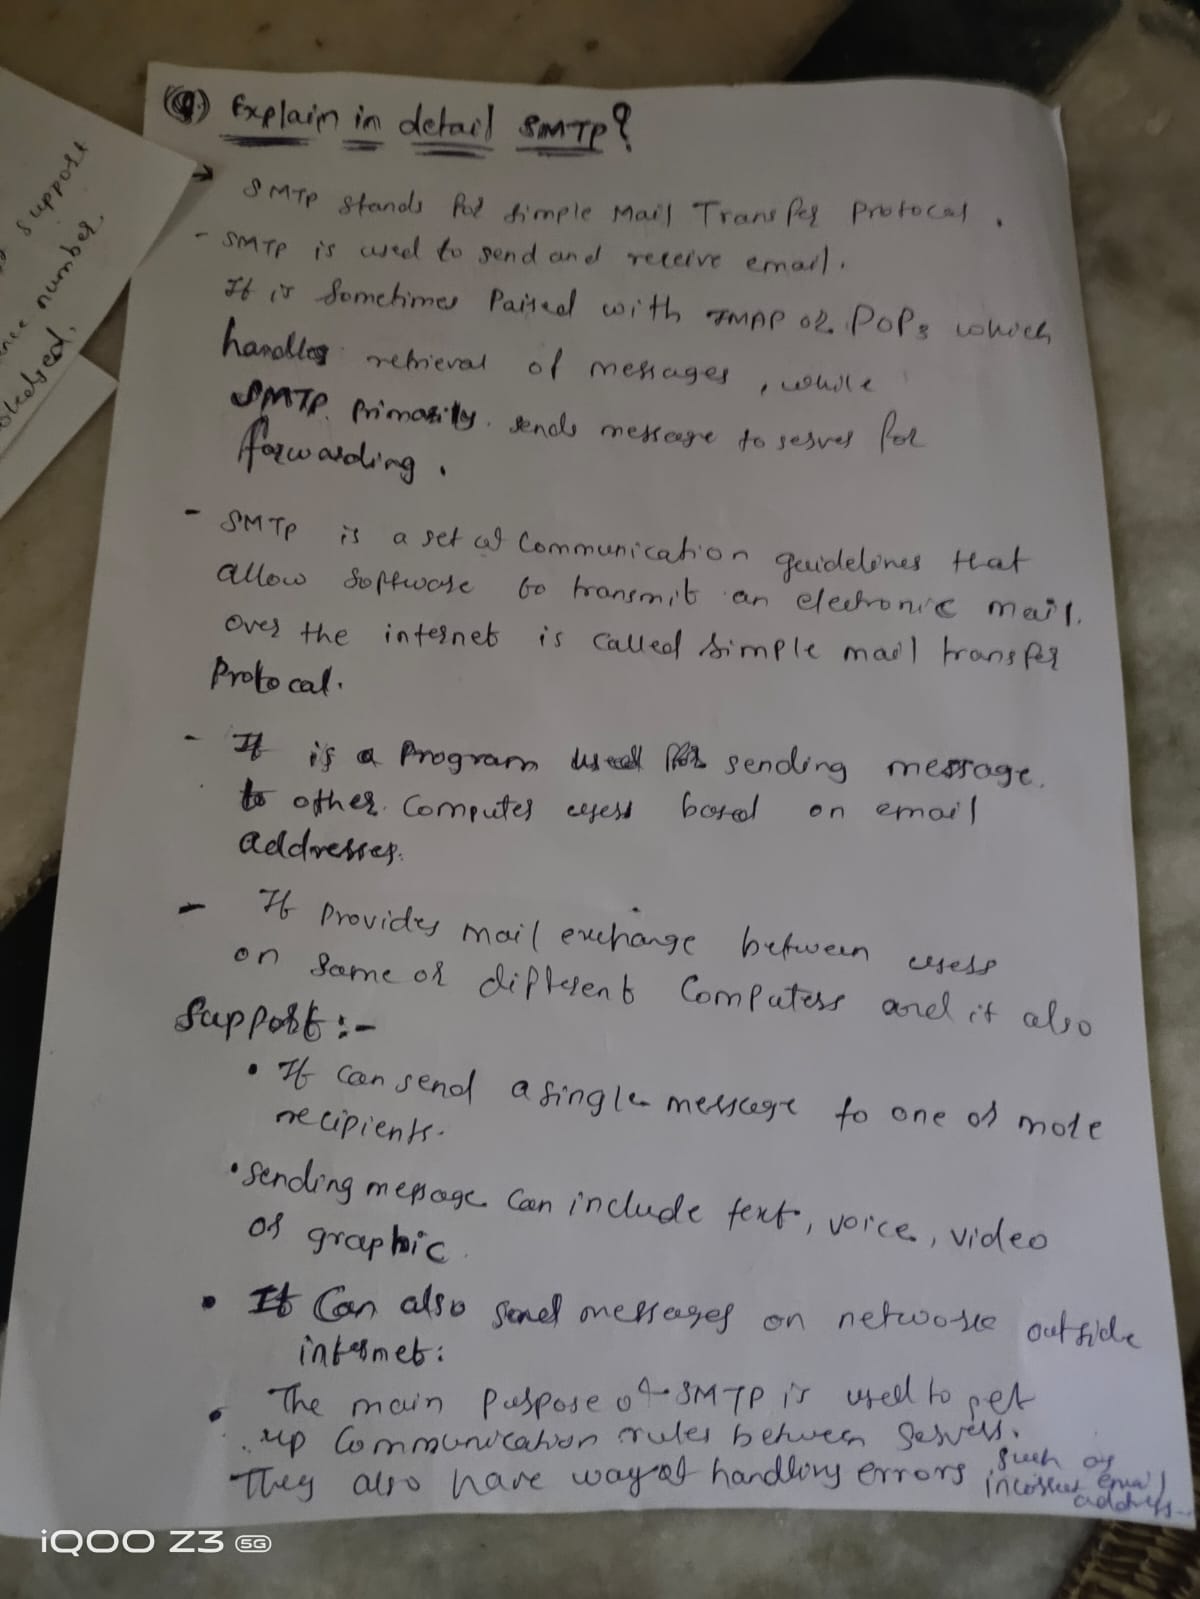 support
nce number
Explain in detail SMTP?
→ SMTP stands for Simple Mail Transfer Protocal.
- SMTP is used to send and receive email.
It is Sometimes Paired with IMAP or POP3 which
handles retrieval of messages, while
SMTP Primarily sends message to server for
forwarding.
- SMTP is a set of Communication guidelines that
allow software to transmit an electronic mail.
over the internet is called Simple mail transfer
Protocal.
- It is a Program used for sending message.
to other Computer users based on email
addresses.
- It Provides mail exchange between users
on same or different Computers and it also
Support:-
• It can send a single message to one or more
recipients.
• Sending message Can include text, voice, video
or graphic
• It Can also send messages on network outside
internet:
• The main Purpose of SMTP is used to set
up Communication rules between servers.
They also have way of handling errors such as
incorrect email
address.
iQOO Z3 5G